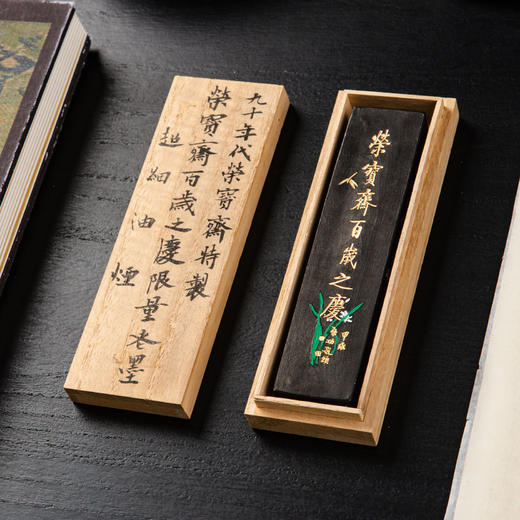 九十年代榮寶齋特製
榮寶齋百歲之慶限量墨
超細油煙
榮寶齋百歲之慶
甲戌